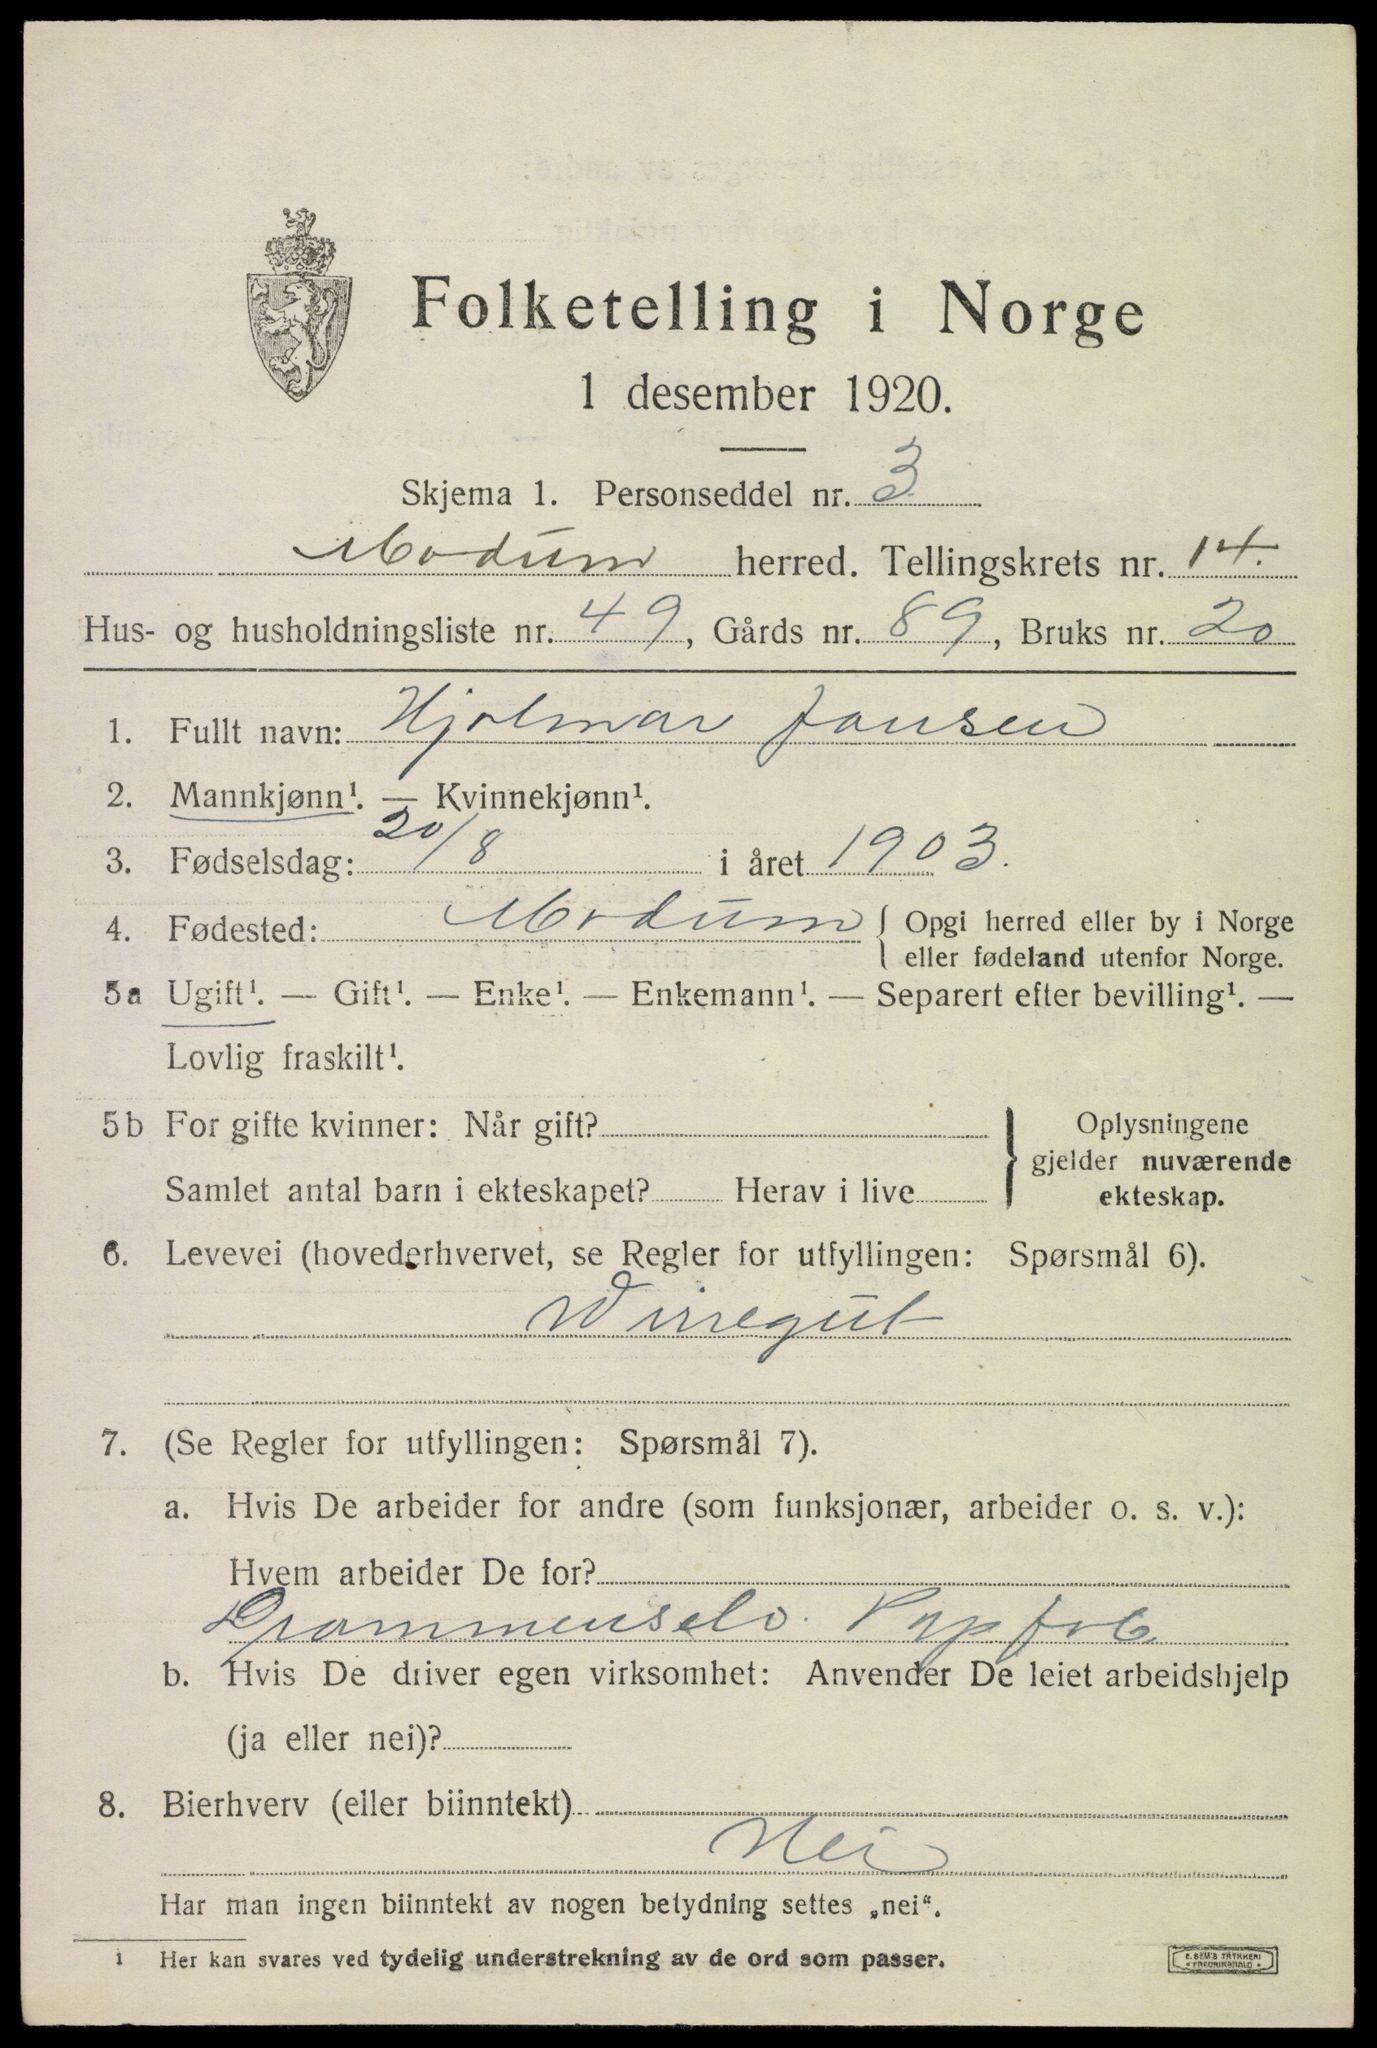 Folketelling i Norge
1 desember 1920.
Skjema 1. Personseddel nr. 3
Modum herred. Tellingskrets nr. 14.
Hus- og husholdningsliste nr. 49, Gårds nr. 89, Bruks nr. 20
1. Fullt navn: Hjalmar Jansen
2. Mannkjønn¹. — Kvinnekjønn¹.
3. Fødselsdag: 20/8 i året 1903.
4. Fødested: Modum { Opgi herred eller by i Norge
eller fødeland utenfor Norge.
5a Ugift¹. — Gift¹. — Enke¹. — Enkemann¹. — Separert efter bevilling¹. —
Lovlig fraskilt¹.
5b For gifte kvinner: Når gift? } Oplysningene
gjelder nuværende
Samlet antal barn i ekteskapet? Herav i live
ekteskap.
6. Levevei (hovederhvervet, se Regler for utfyllingen: Spørsmål 6).
Viregut
7. (Se Regler for utfyllingen: Spørsmål 7).
a. Hvis De arbeider for andre (som funksjonær, arbeider o. s. v.):
Hvem arbeider De for?
Drammenselv. Papfab
b. Hvis De driver egen virksomhet: Anvender De leiet arbeidshjelp
(ja eller nei)?
8. Bierhverv (eller biinntekt)
Nei
Har man ingen biinntekt av nogen betydning settes „nei“.
1 Her kan svares ved tydelig understrekning av de ord som passer.
E. SEM'S TRYKKERI
• FREDRIKSHALD •